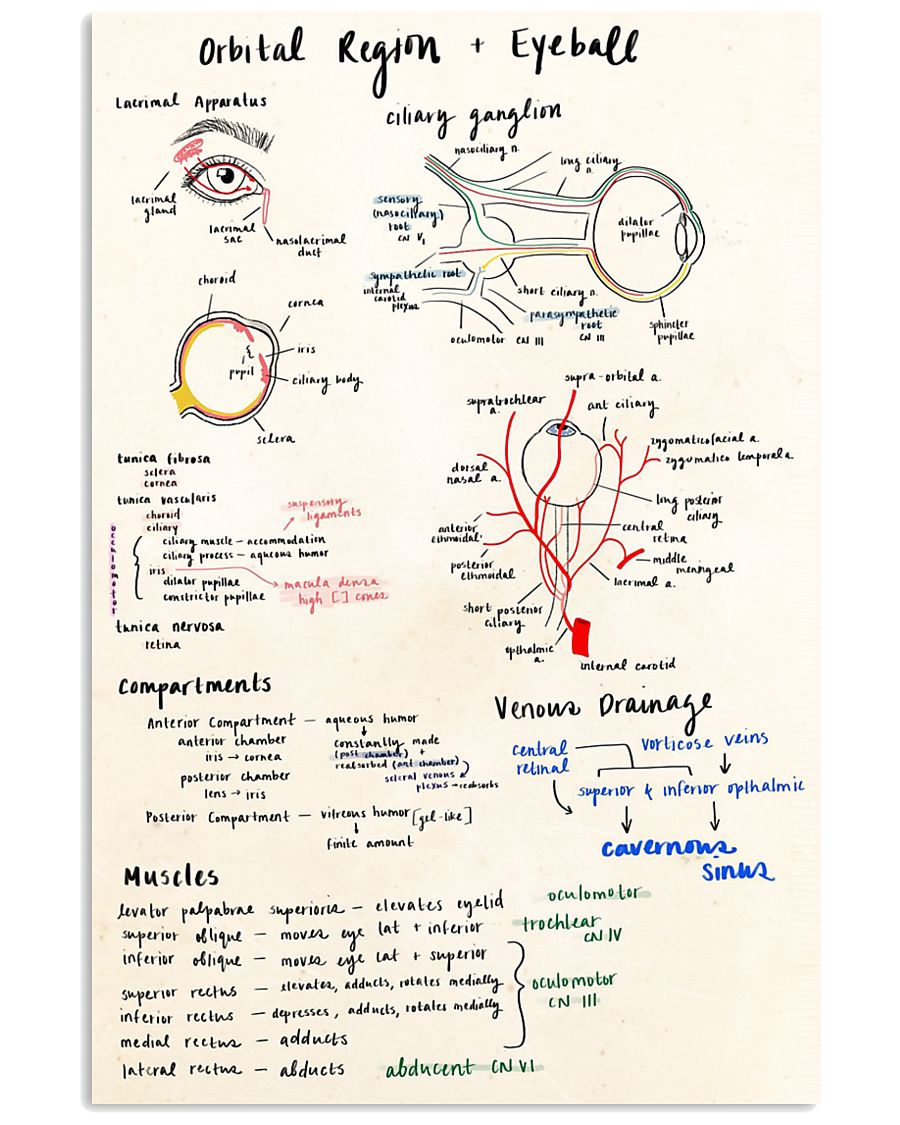 Orbital Region + Eyeball
Lacrimal Apparatus
lacrimal
gland
lacrimal
sac
nasolacrimal
duct
choroid
cornea
iris
pupil
ciliary body
sclera
ciliary ganglion
nasociliary n.
long ciliary
n.
sensory
(nasociliary)
root
CN V1
dilator
pupillae
sympathetic root
internal
carotid
plexus
short ciliary n.
parasympathetic
root
CN III
oculomotor CN III
sphincter
pupillae
supra-orbital a.
supratrochlear
a.
ant ciliary
zygomaticofacial a.
zygomatico temporal a.
dorsal
nasal a.
long posterior
ciliary
anterior
ethmoidal
central
retina
middle
meningeal
posterior
ethmoidal
lacrimal a.
short posterior
ciliary
opthalmic
a.
internal carotid
tunica fibrosa
sclera
cornea
tunica vascularis
choroid
ciliary
suspensory
ligaments
ciliary muscle - accommodation
ciliary process - aqueous humor
iris
dilator pupillae
constrictor pupillae
macula densa
high [ ] cones
occulomotor
tunica nervosa
retina
Compartments
Anterior Compartment - aqueous humor
anterior chamber
iris → cornea
posterior chamber
lens → iris
constantly made
(post chamber) +
reabsorbed (ant chamber)
scleral venous
plexus → reabsorbs
Posterior Compartment - vitreous humor [gel-like]
finite amount
Venous Drainage
central
retinal
vorticose veins
superior & inferior opthalmic
cavernous
sinus
Muscles
levator palpabrae superioris - elevates eyelid oculomotor
superior oblique - moves eye lat + inferior trochlear
CN IV
inferior oblique - moves eye lat + superior
superior rectus - elevates, adducts, rotates medially
inferior rectus - depresses, adducts, rotates medially
medial rectus - adducts
oculomotor
CN III
lateral rectus - abducts abducent CN VI